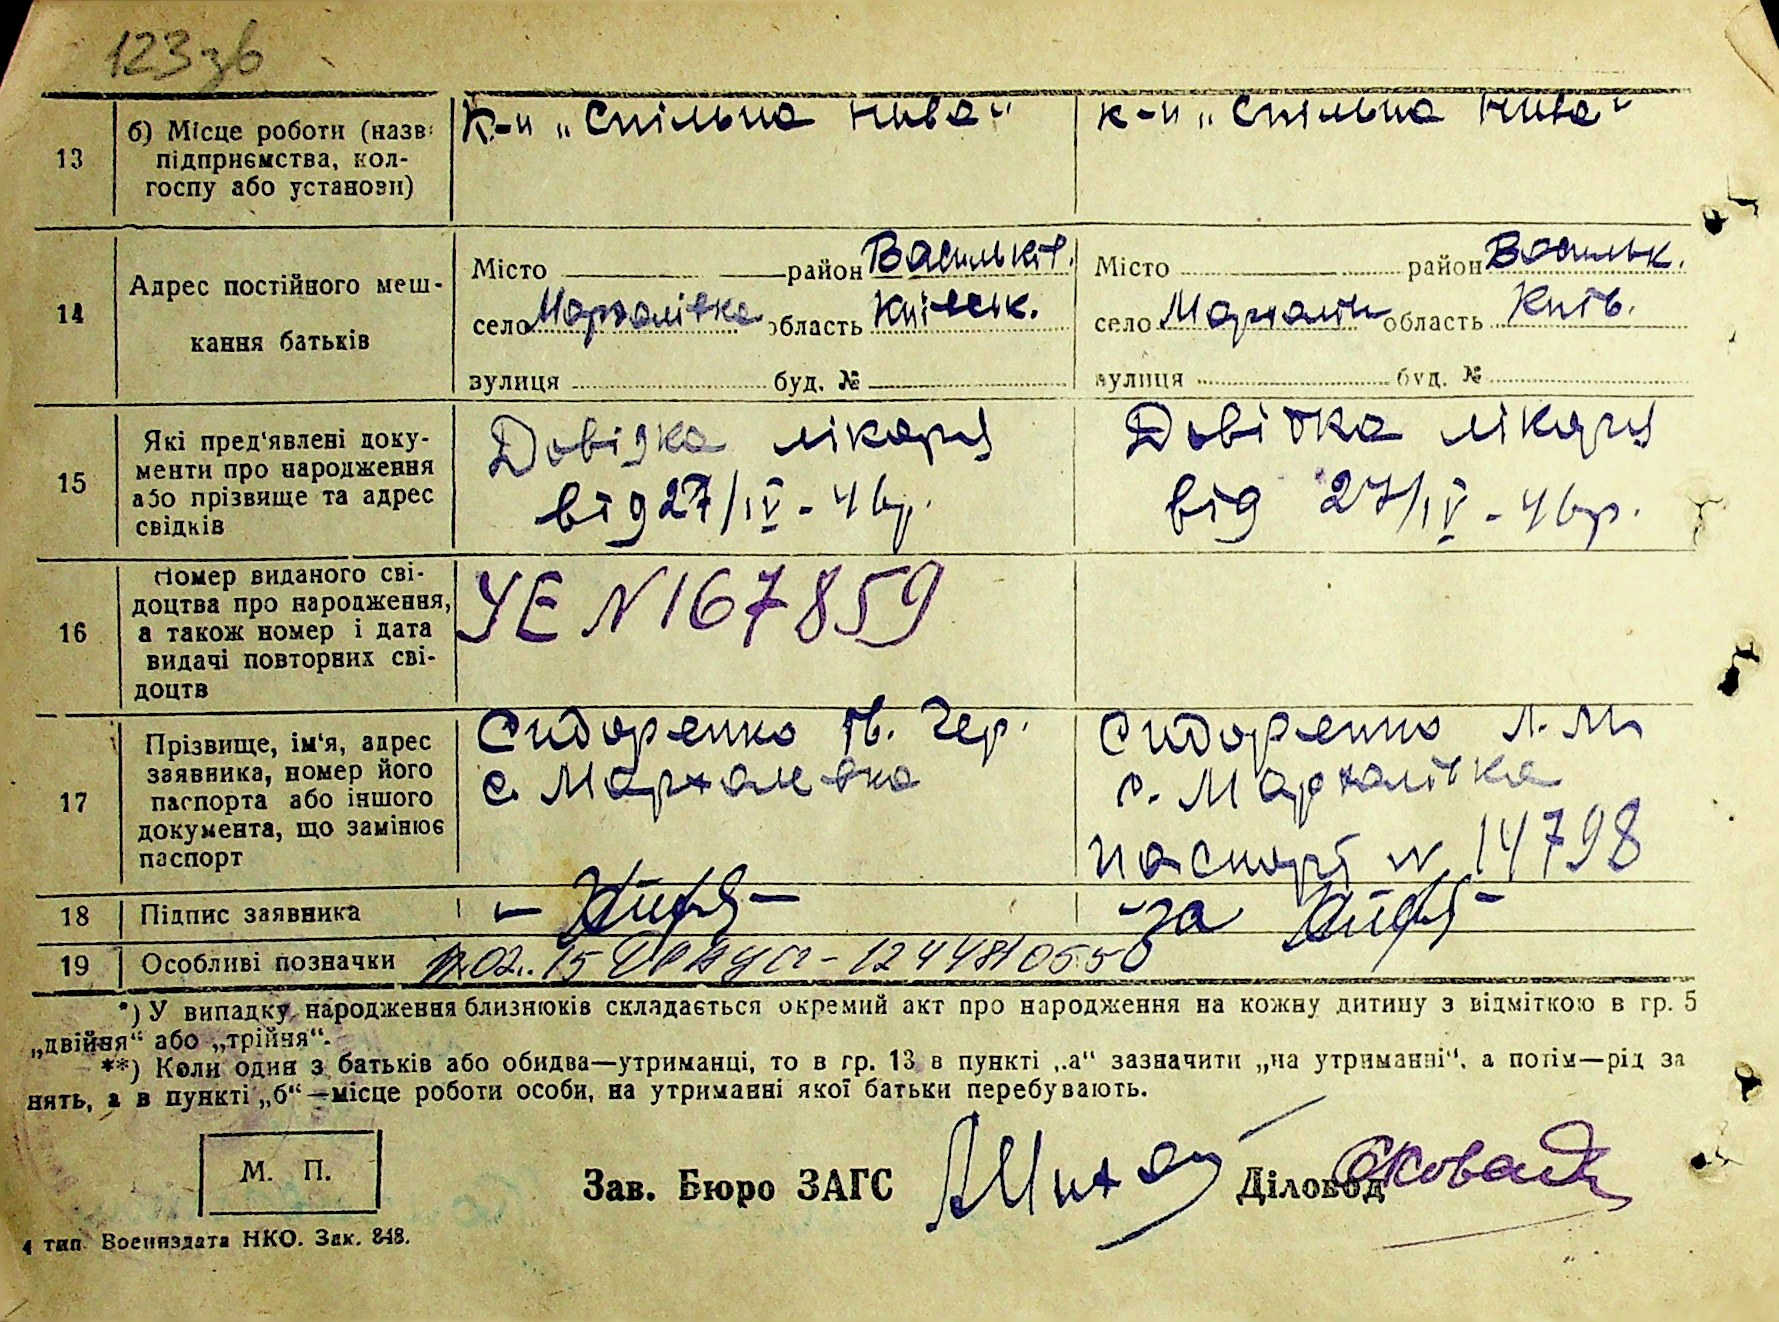 123 зв
13
б) Місце роботи (назв
підприємства, кол-
госпу або установи)
К-п „Спільна Нива"
к-п „Спільна Нива"
14
Адрес постійного меш-
кання батьків
Місто район Васильків.
село Мархалівка область Київськ.
вулиця буд. №
Місто район Васильк.
село Мархалів область Київ.
вулиця буд. №
15
Які пред'явлені доку-
менти про народження
або прізвище та адрес
свідків
Довідка лікаря
від 27/IV - 46р.
Довідка лікаря
від 27/IV - 46р.
16
Номер виданого сві-
доцтва про народження,
а також номер і дата
видачі повторних сві-
доцтв
УЕ N 167859
17
Прізвище, ім'я, адрес
заявника, номер його
паспорта або іншого
документа, що замінює
паспорт
Сидоренко Гр.
с. Мархалевка
Сидоренко М.
с. Мархалівка
паспорт N 14798
18
Підпис заявника
- за
19
Особливі позначки
*) У випадку народження близнюків складається окремий акт про народження на кожну дитину з відміткою в гр. 5
„двійня" або „трійня".
**) Коли один з батьків або обидва—утриманці, то в гр. 13 в пункті „а" зазначити „на утриманні", а потім—рід за
нять, а в пункті „б"—місце роботи особи, на утриманні якої батьки перебувають.
М. П.
Зав. Бюро ЗАГС
Діловод
4 тип. Воениздата НКО. Зак. 848.